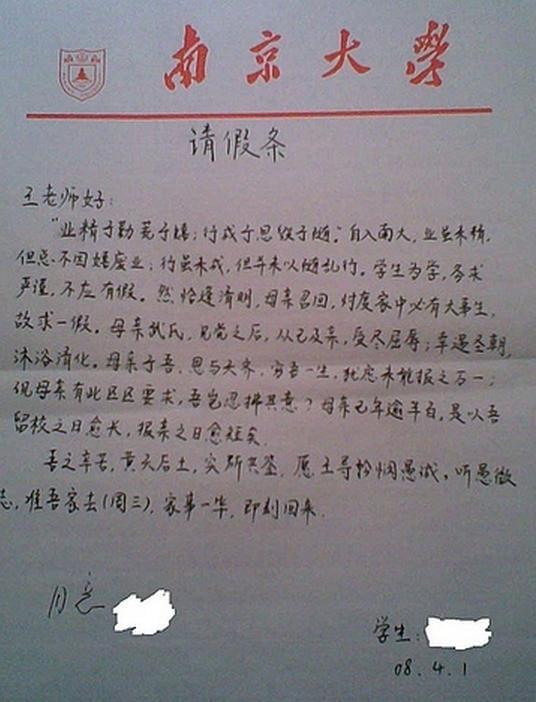 南京大學
请假条
王老师好:
"业精于勤荒于嬉;行成于思毁于随。"自入南大,业虽未精,
但总不因嬉废业;行虽未成,但并未以随乱行。学生为学,务求
严谨,不应有假。然恰逢清明,母亲召回,忖度家中必有大事生,
故求一假。母亲武氏,见党之后,从己及亲,受尽屈辱;幸遇圣朝,
沐浴清化。母亲于吾,恩与天齐,穷吾一生,犹恐未能报之万一;
况母亲有此区区要求,吾岂忍拂其意?母亲已年逾半百,是以吾
留校之日愈长,报亲之日愈短矣.
吾之辛苦,黄天后土,实所共鉴.愿王导矜悯愚诚,听愚微
志,准吾家去(周三),家事一毕,即刻回来.
同意
学生:
08.4.1